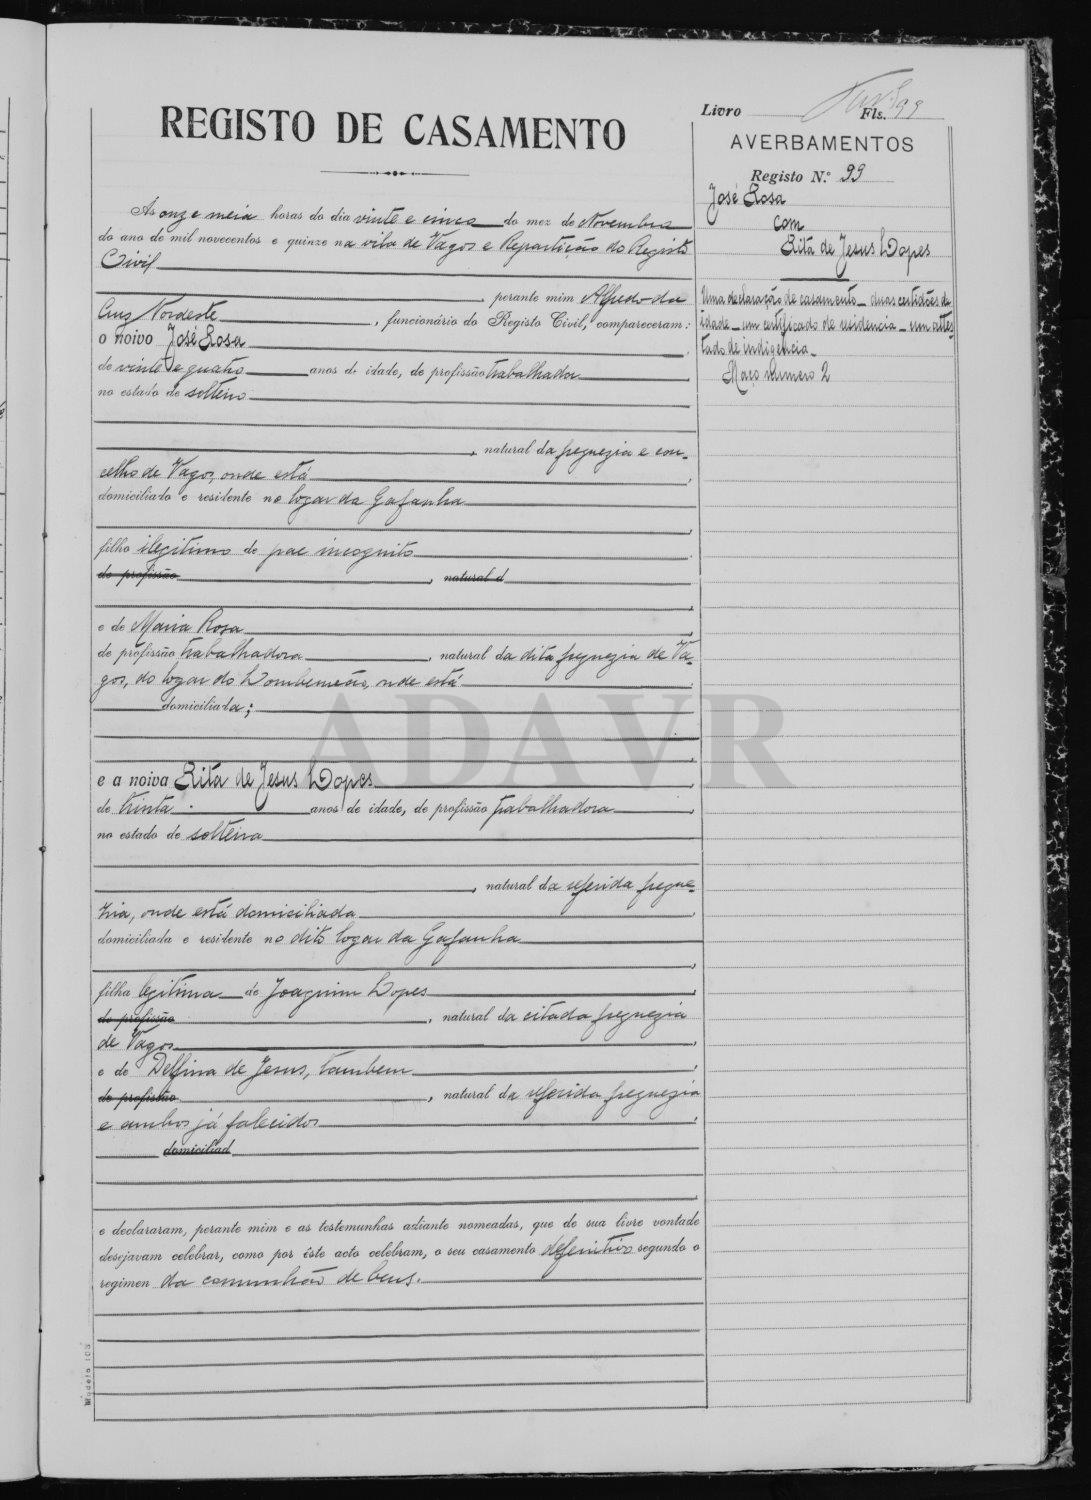 REGISTO DE CASAMENTO
Livro Fls. 99
AVERBAMENTOS
Registo N.º 99
José Rosa
com
Rita de Jesus Lopes
Uma declaração de casamento — duas certidões de
idade — um certificado de residencia — um attes-
tado de indigencia —
Maço numero 2
Ás onze e meia horas do dia vinte e cinco do mez de Novembro
do ano de mil novecentos e quinze na vila de Vagos e Repartição do Registo
Civil
, perante mim Alfredo da
Cruz Nordeste, funcionário do Registo Civil, compareceram:
o noivo José Rosa
de vinte e quatro anos de idade, de profissão trabalhador
no estado de solteiro
, natural da freguezia e con-
celho de Vagos, onde está
domiciliado e residente no logar da Gafanha
filho ilegitimo de pae incognito
de profissão, natural d
e de Maria Rosa
de profissão trabalhadora, natural da dita freguezia de Va-
gos, do logar do Lombomeão, onde está
domiciliada;
e a noiva Rita de Jesus Lopes
de trinta anos de idade, de profissão trabalhadora
no estado de solteira
, natural da referida fregue-
zia, onde está domiciliada
domiciliada e residente no dito logar da Gafanha
filha legitima de Joaquim Lopes
de profissão, natural da citada freguezia
de Vagos
e de Delfina de Jesus, tambem
de profissão, natural da referida freguezia
e ambos já falecidos
domiciliad
e declararam, perante mim e as testemunhas adiante nomeadas, que de sua livre vontade
desejavam celebrar, como por êste acto celebram, o seu casamento definitivo segundo o
regimen da comunhão de bens.
Modelo 103
ADAVR